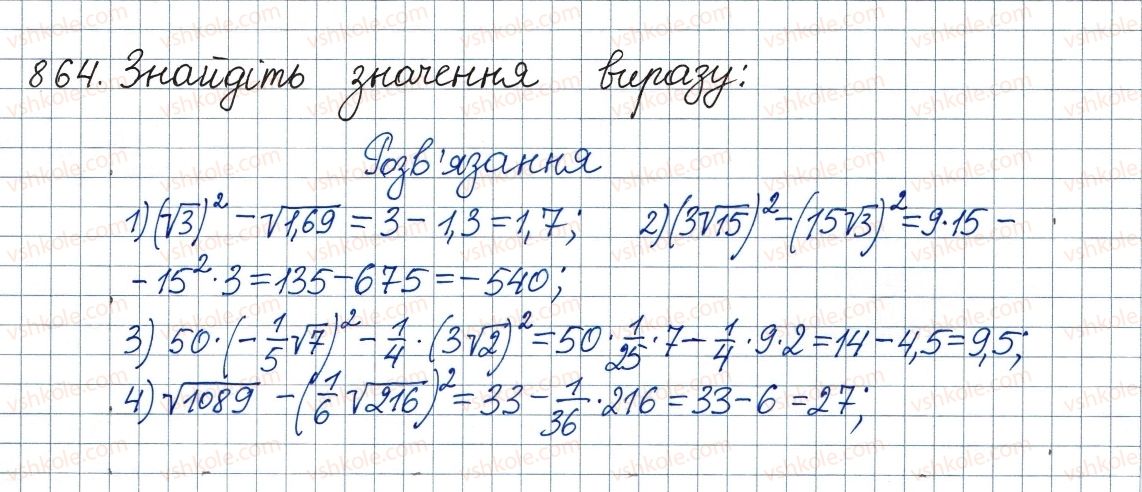 864. Знайдіть значення виразу:
Розв'язання
1) (√3)² − √1,69 = 3 − 1,3 = 1,7; 2) (3√15)² − (15√3)² = 9·15 −
− 15²·3 = 135 − 675 = − 540;
3) 50·(−1/5√7)² − 1/4·(3√2)² = 50·1/25·7 − 1/4·9·2 = 14 − 4,5 = 9,5;
4) √1089 − (1/6√216)² = 33 − 1/36·216 = 33 − 6 = 27;